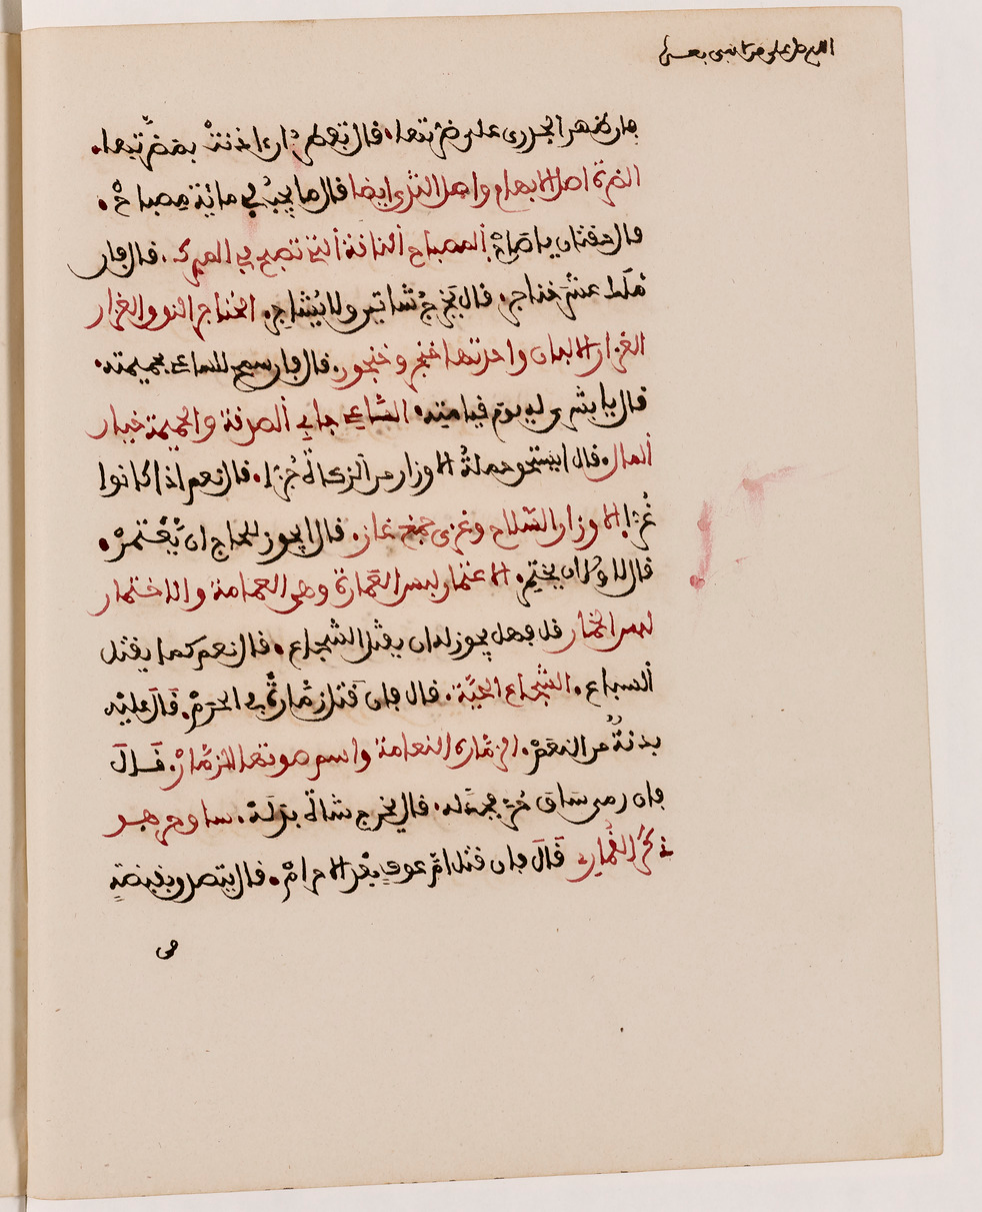 اللهم صل على من لا نبي بعده
فإن ظهر الجدري على ضرتها. قال تفطر إن اذنت بمضرتها.
الضرة اصل الابهام واصل الثدي ايضا قال ما يجب في مائة مصباح.
قال حقتان يا صاح المصباح الناقة التي تصبح في المبرك. قال فإن
ملك عشر خناجر. قال يخرج شاتين ولا يشاجر. الخناجر النوق الغزار
الغزار الالبان واحدتها خنجر وخنجور. قال فإن سمح للساعي بحميمته.
قال يا بشرى له يوم قيامته. الساعي جابي الصدقة والحميمة خيار
المال. قال ايستحق حملة الاوزار من الزكاة جزءا. قال نعم اذا كانوا
غزا. الاوزار السلاح وغزى جمع غاز. قال ايجوز للحاج ان يعتمر.
قال لا ولا ان يختمر. الاعتمار لبس العمارة وهي العمامة والاختمار
لبس الخمار قال فهل يجوز له ان يقتل الشجاع. قال نعم كما يقتل
السباع. الشجاع الحية. قال فإن قتل زمارة في الحرم. قال عليه
بدنة من النعم. الزمارة النعامة واسم صوتها الزمار. قال
فإن رمى ساق حر فجدله. قال يخرج شاة بدله. ساق حر هو
ذكر القماري قال فإن قتل ام عوف بعد الاحرام. قال يتصدق بقبضة
من